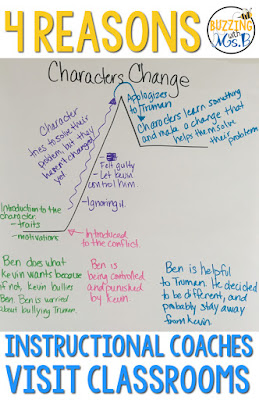 4 REASONS
BUZZING
with
Ms.B
Characters Change
Apologizes
to Truman
Characters learn something
and make a change that
helps them solve
their problem
Character
tries to solve their
problem, but they
haven't changed
yet
- Felt guilty
- Let Kevin
control him
- Ignoring it.
Introduction to the
character
- traits
- motivations
Introduced
to the conflict.
Ben does what
Kevin wants because
if not, Kevin bullies
Ben. Ben is worried
about bullying Truman.
Ben is
being controlled
and punished
by Kevin.
Ben is helpful
to Truman. He decided
to be different, and
probably stay away
from Kevin.
INSTRUCTIONAL COACHES
VISIT CLASSROOMS